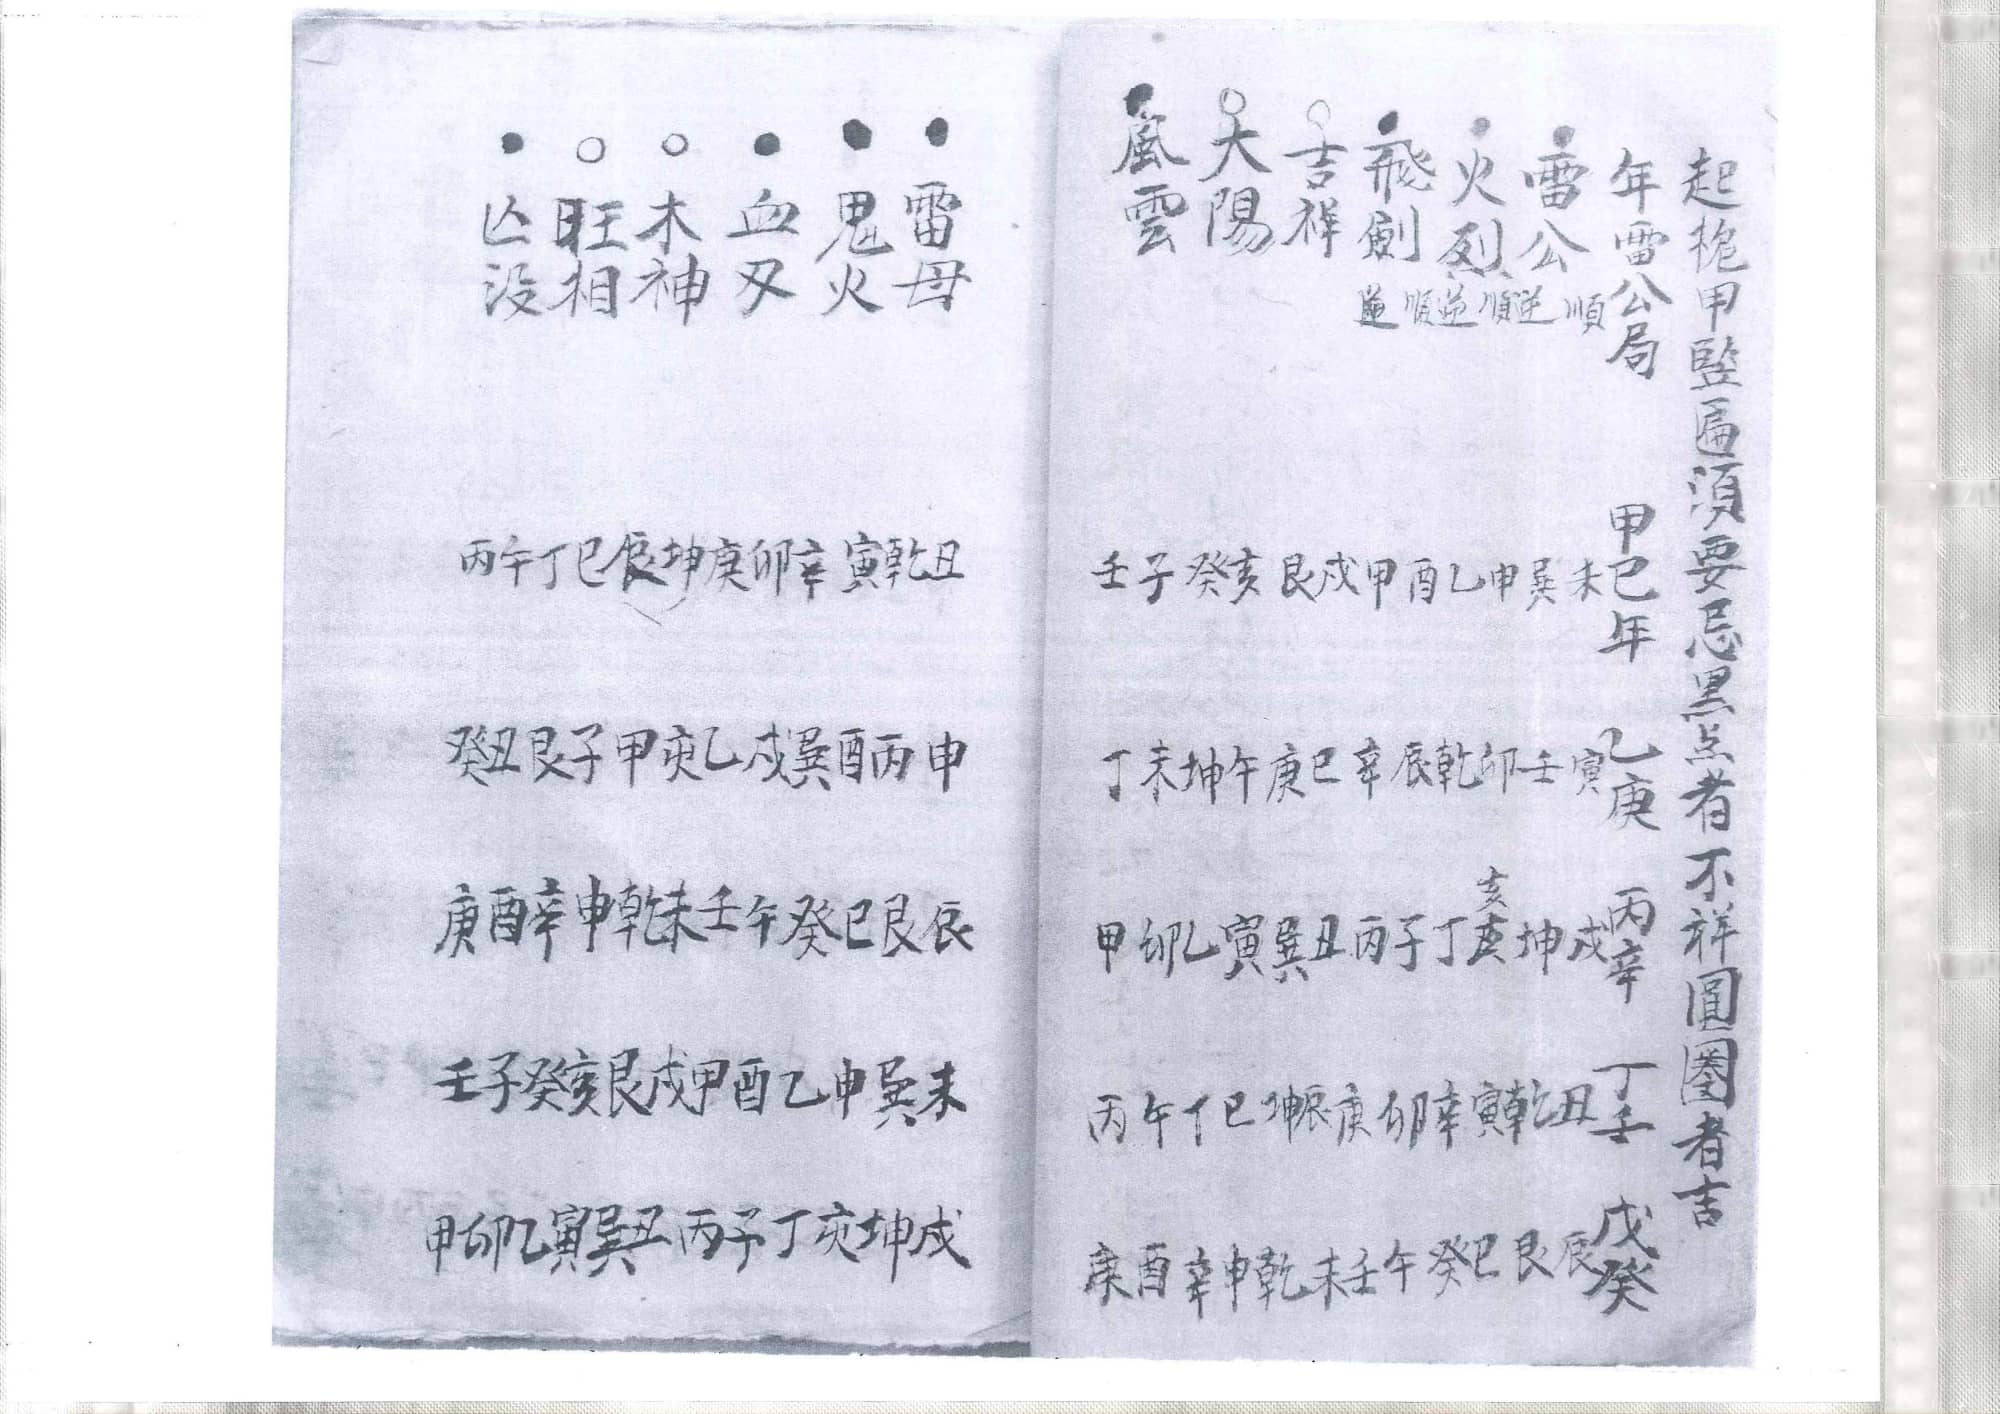 起桅甲竪匾須要忌黑点者不祥圓圈者吉
年雷公局 甲己年 乙庚 丙辛 丁壬 戊癸
雷公 順逆 未巽 寅壬 戌坤 丑乾 辰艮
火烈 順逆 申乙 卯乾 亥亥丁 寅辛 巳癸
飛劍 順逆 酉甲 辰辛 子丙 卯庚 午壬
吉祥 戌艮 巳庚 丑巽 辰坤 未乾
太陽 亥癸 午坤 寅乙 巳丁 申辛
風雲 子壬 未丁 卯甲 午丙 酉庚
雷母 丑乾 申丙 辰艮 未巽 戌坤
鬼火 寅辛 酉巽 巳癸 申乙 亥丁
血刃 卯庚 戌乙 午壬 酉甲 子丙
木神 坤辰 亥甲 未乾 戌艮 丑巽
旺相 巳丁 子艮 申辛 亥癸 寅乙
亡没 午丙 丑癸 酉庚 子壬 卯甲